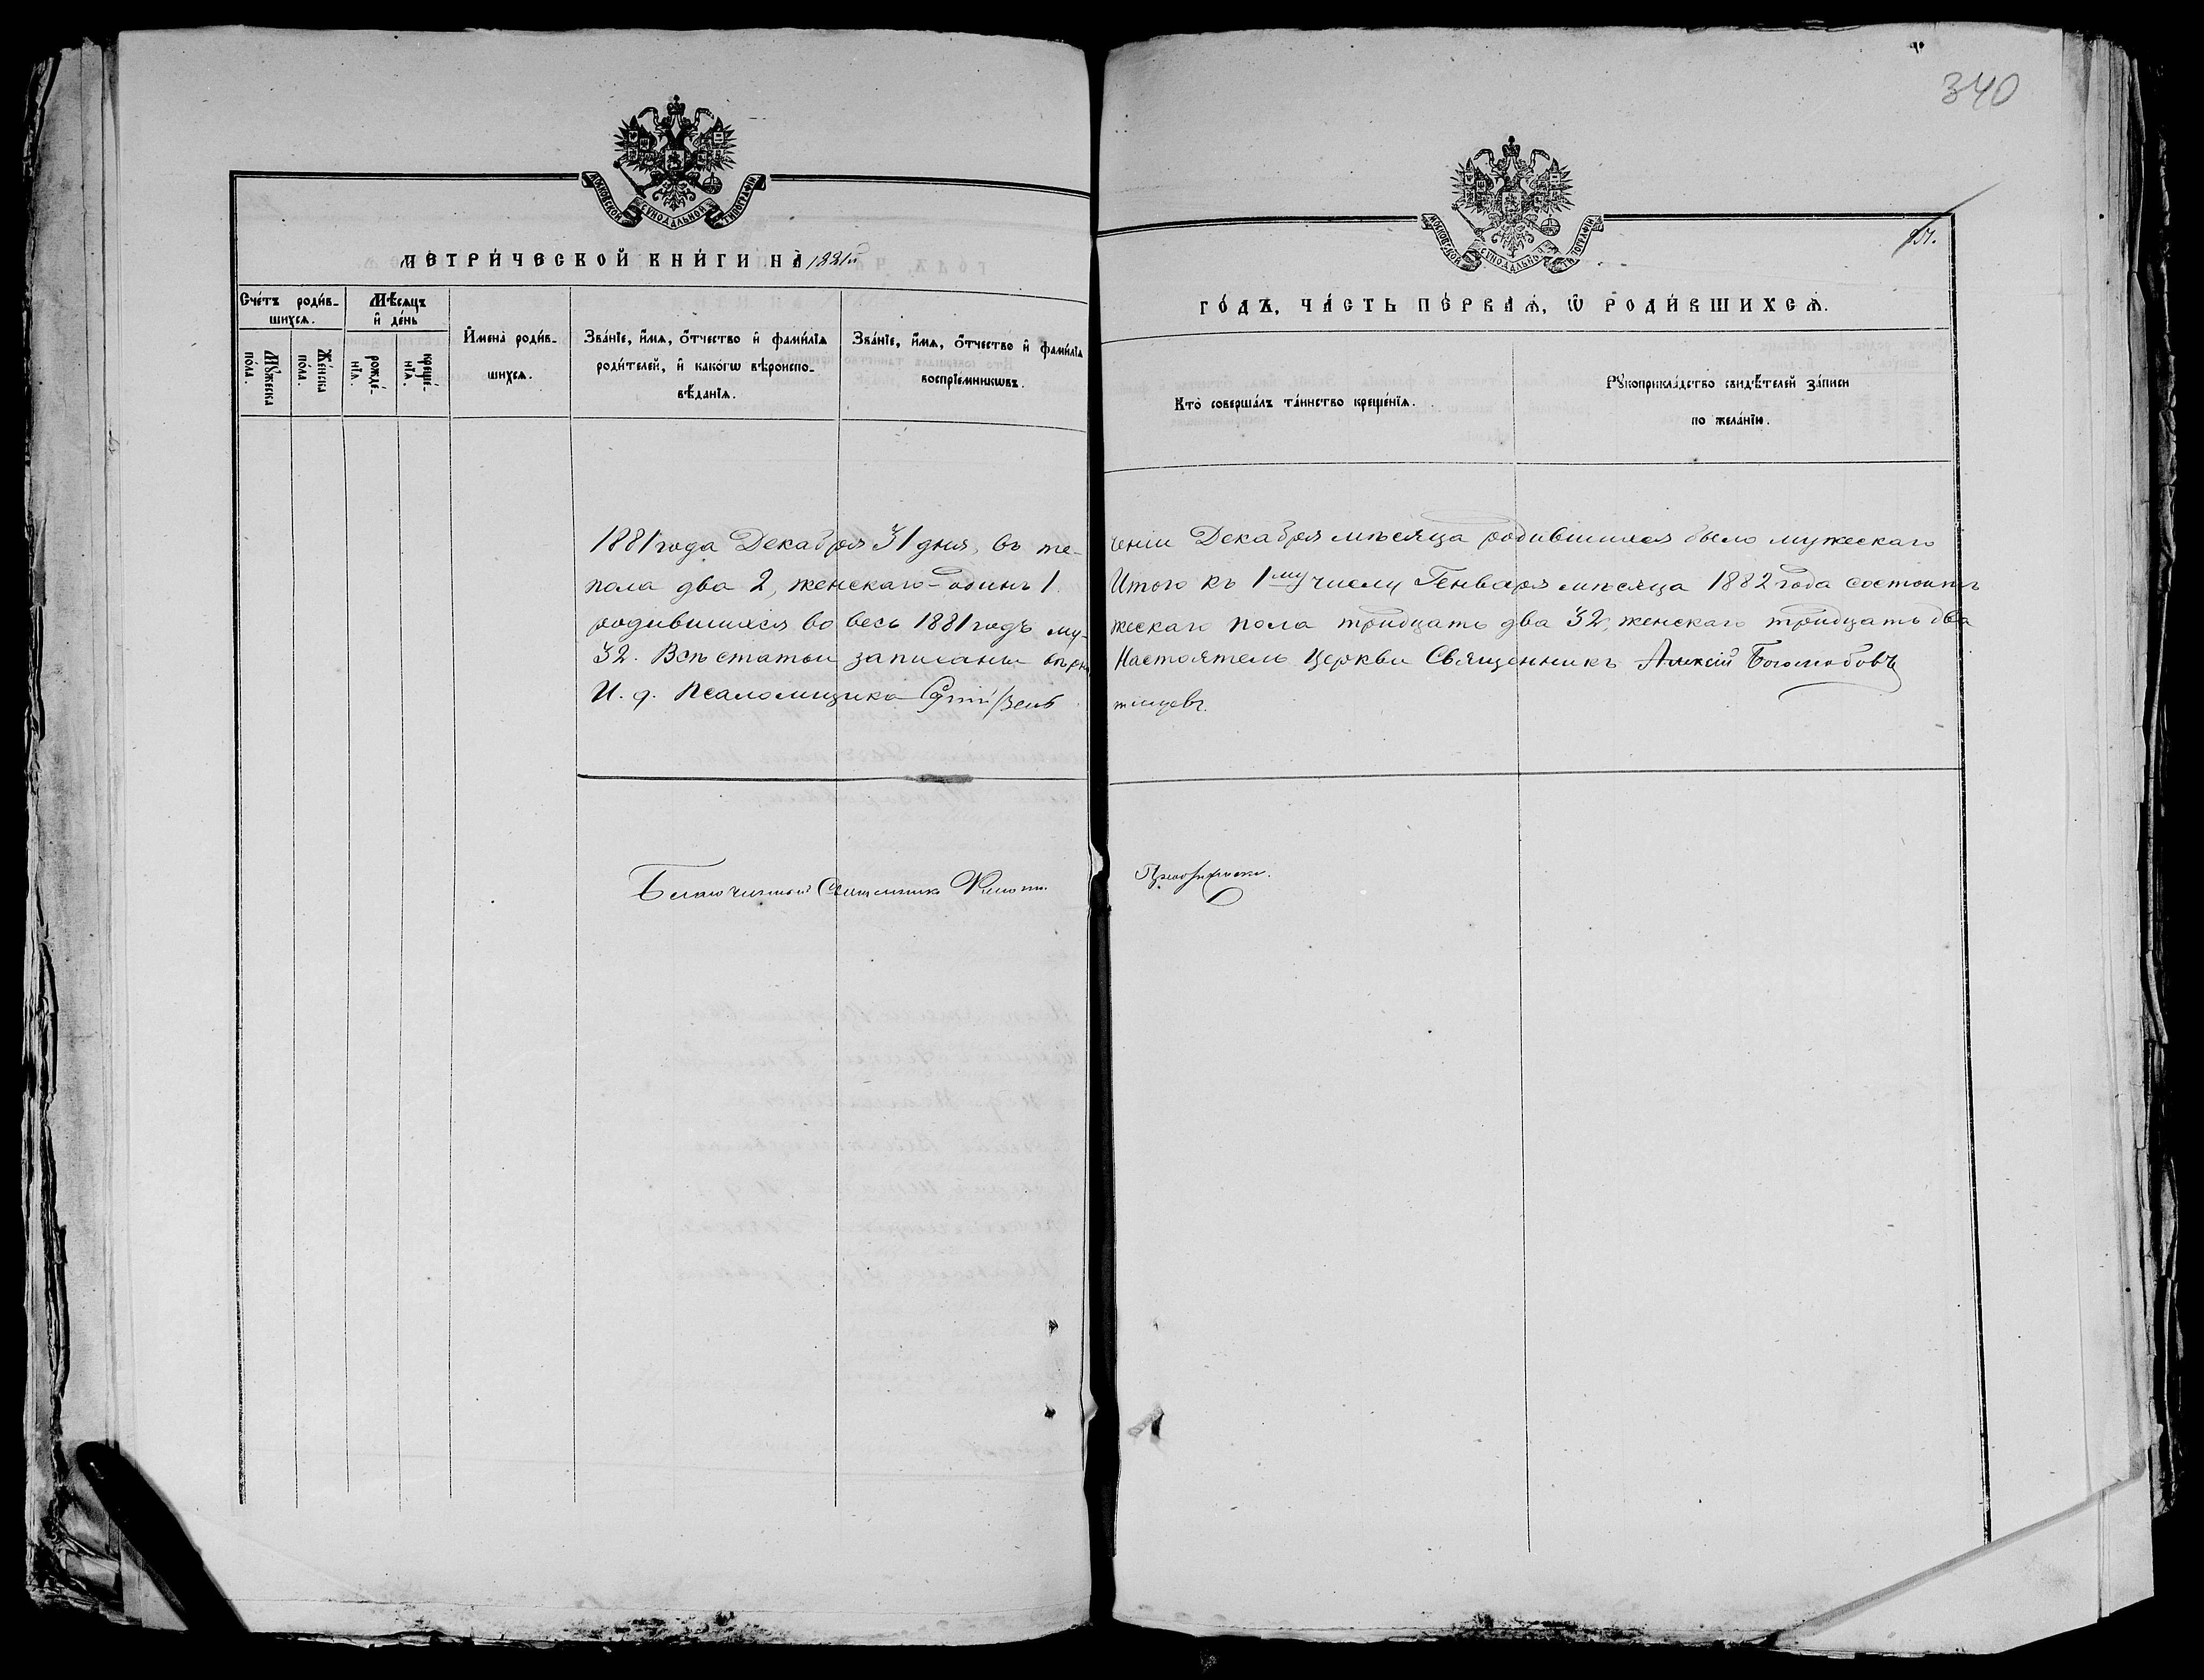 340
МОСКОВСКОЙ СѴНОДАЛЬНОЙ ТИПОГРАФІИ
МОСКОВСКОЙ СѴНОДАЛЬНОЙ ТИПОГРАФІИ
МЕТРИ́ЧЕСКОЙ КНИ́ГИ НА̀ 1881й
ГО́ДЪ, ЧА́СТЬ ПЕ́РВАѦ, Ѡ҆ РОДИ́ВШИХСѦ.
Сче́тъ роди́в-
шихсѧ.
Мꙋ́жеска
по́ла.
Же́нска
по́ла.
Мѣ́сѧцъ
и҆ де́нь
рожде́-
нїѧ.
креще́-
нїѧ.
И҆мена̀ роди́в-
шихсѧ.
Зва́нїе, и҆́мѧ, ѻ҆́тчество и҆ фами́лїѧ
роди́телей, и҆ како́гѡ вѣроиспо-
вѣ́данїѧ.
Зва́нїе, и҆́мѧ, ѻ҆́тчество и҆ фами́лїѧ
воспрїе́мникѡвъ.
Кто̀ соверша́лъ та́инство креще́нїѧ.
Рꙋкоприкла́дство свидѣ́телей за́писи
по жела́нїю.
1881 года Декабря 31 дня, въ те-
чении Декабря мѣсяца родившихся было мужескаго
пола два 2, женскаго - одинъ 1.
Итого къ 1му числу Генваря мѣсяца 1882 года состоитъ
родившихся во весь 1881 годъ му-
жескаго пола тридцать два 32, женскаго тридцать два
32. Всѣ статьи записаны вѣрно
Настоятель Церкви Священникъ Алексій Боголюбовъ
И. д. Псаломщика
Благочинный Священникъ